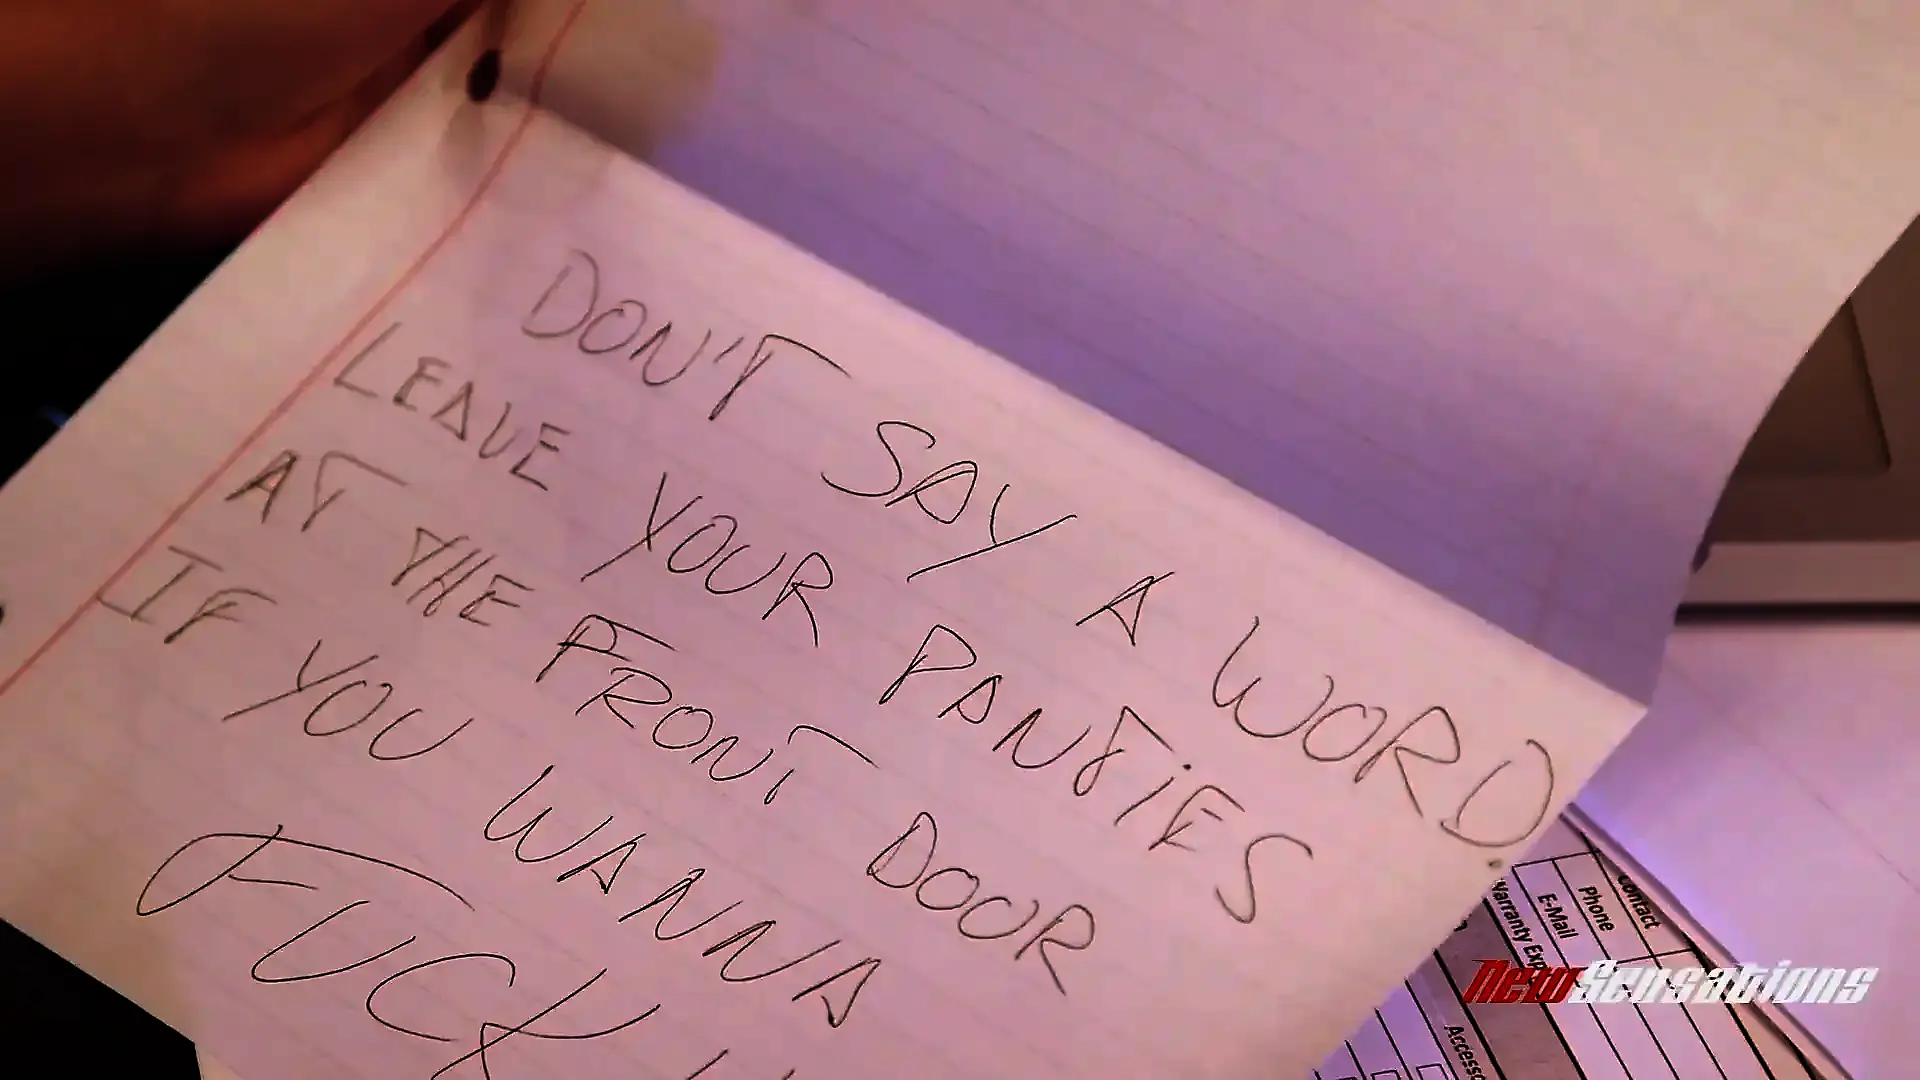 DON'T SAY A WORD.
LEAVE YOUR PANTIES
AT THE FRONT DOOR
IF YOU WANNA
FUCK
Contact
Phone
E-Mail
Warranty Exp
Access
NewSensations